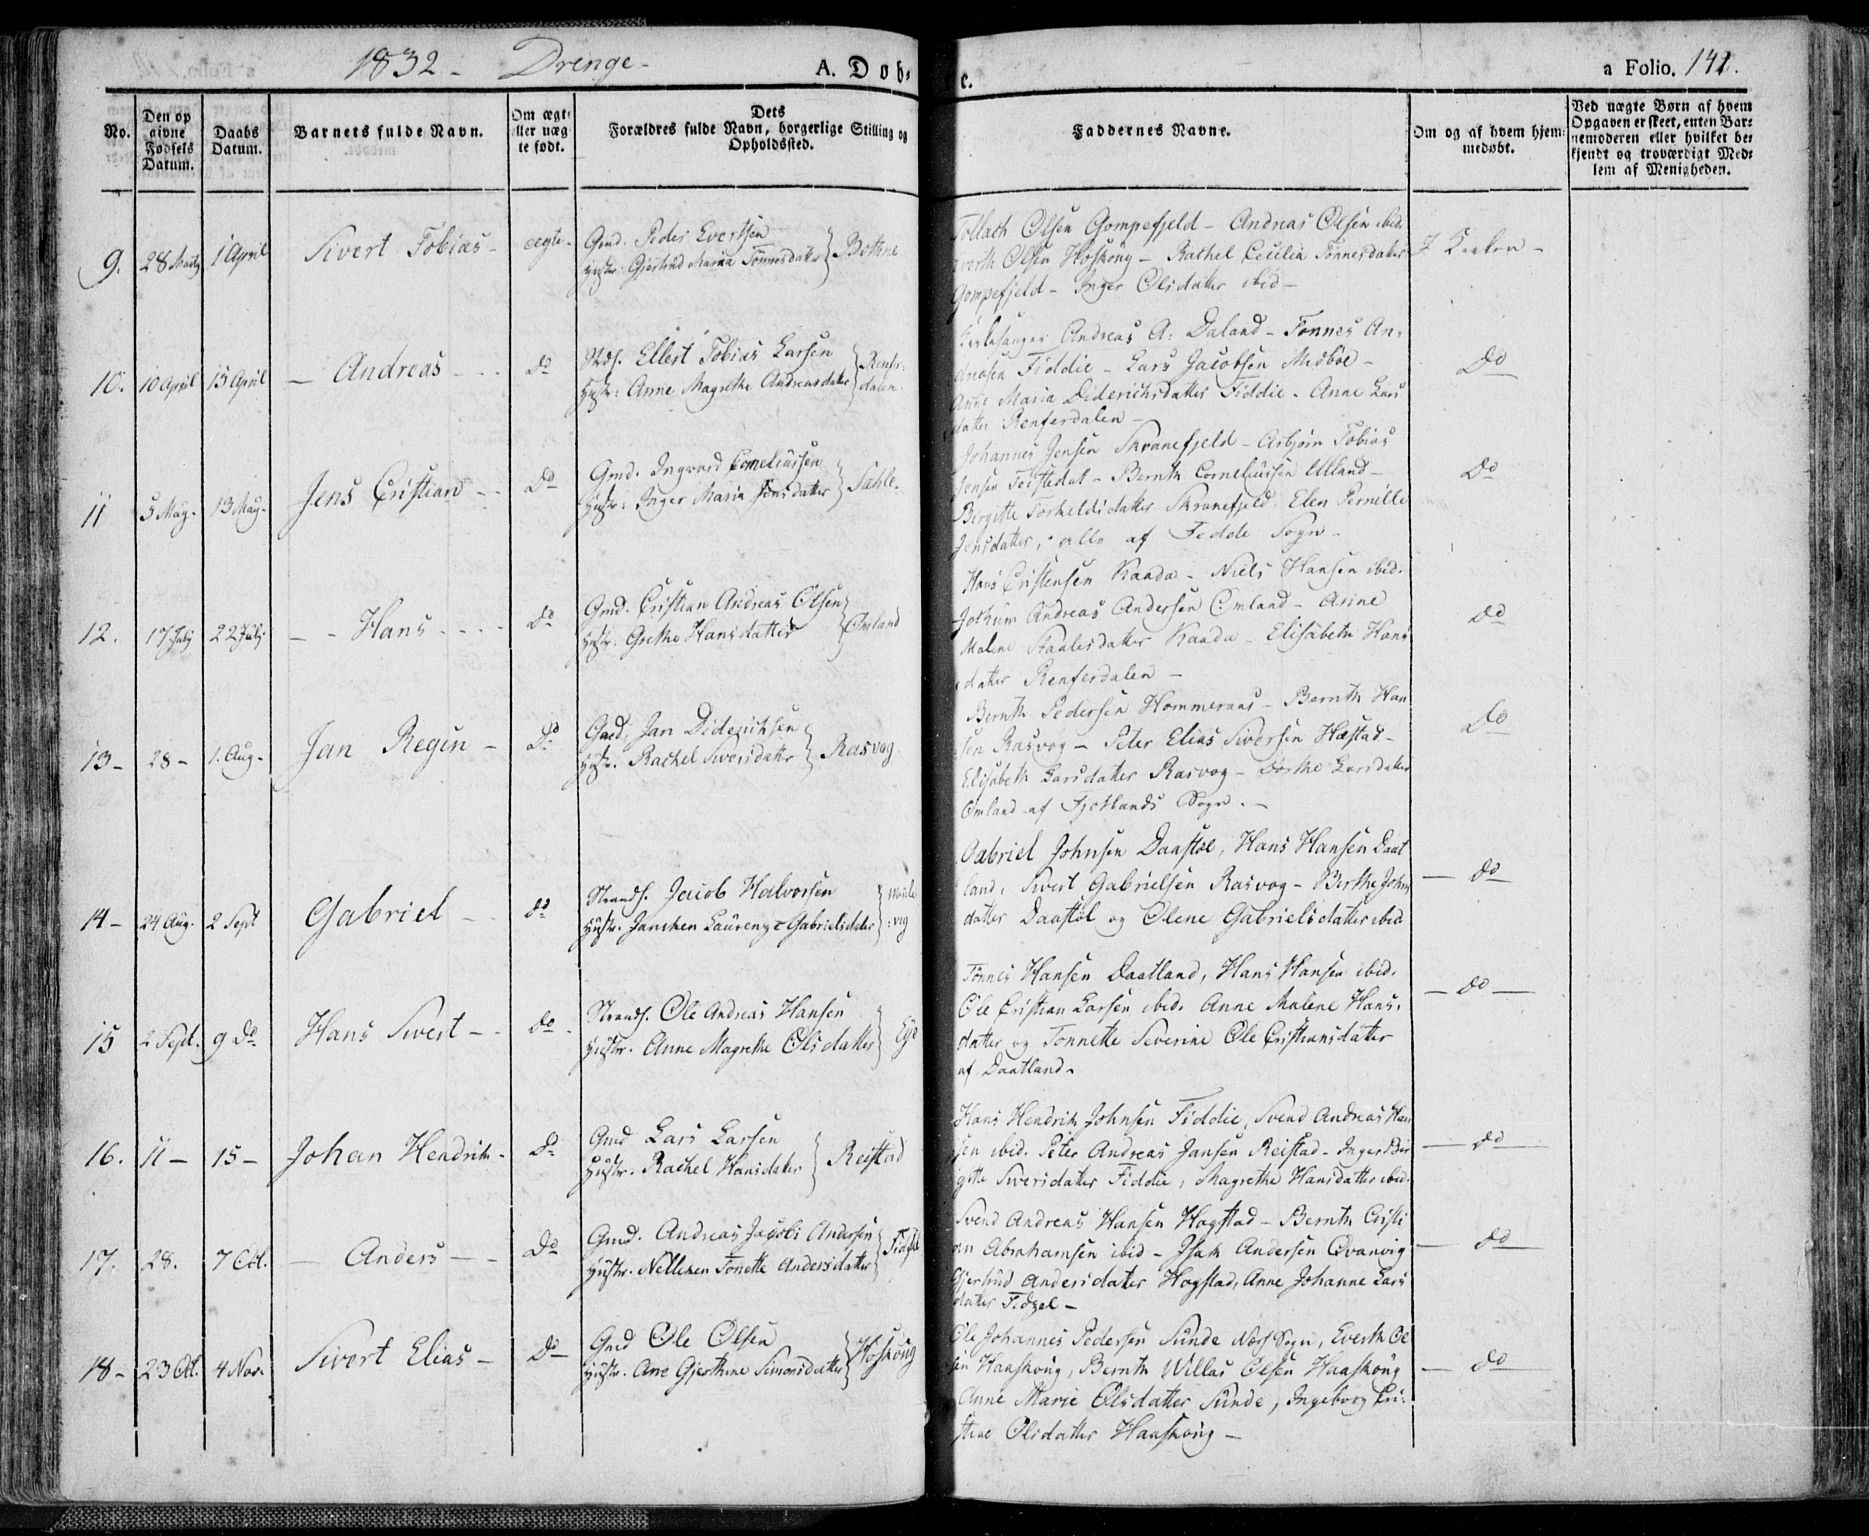 1832 - Drenge -
A. Dob-
e.
a Folio. 141.
No.
Den op
givne
Fødsels
Datum.
Daabs
Datum.
Barnets fulde Navn.
Om ægte
eller uæg
te født.
Dets
Forældres fulde Navn, borgerlige Stilling og
Opholdssted.
Faddernes Navne.
Om og af hvem hjem-
medøbt.
Ved uægte Børn af hvem
Opgaven er skeet, enten Bar-
nemoderen eller hvilket be-
kjendt og troværdigt Med-
lem af Menigheden.
9. 28 Marts 1 April Sivert Tobias - ægte -
Gmd. Peder Evertsen
Hustr: Gjertrud Maria Tønnesdatter } Bothne
Tollach Olsen Gompefjeld - Andreas Olsen ibid.
Everth Olsen Høskong - Rachel Cecilia Tønnesdatter
Gompefjeld - Inger Olsdatter ibid -
I Kirken -
10. 10 April 15 April - Andreas - - - do
Ellert Tobias Larsen
Hustr: Anne Magrethe Andreasdatter } Renfer-
dalen
Kirkesanger Andreas A. Daland - Tønnes An-
dreasen Fiddie - Lars Jacobsen Medbøe -
Anne Maria Diderichsdatter Fiddie - Anne Lars
datter Renferdalen -
Do
11 5 May - 13 May - Jens Cristian - - Do
Gmd. Ingvard Corneliussen
Hustr: Inger Maria Jensdatter }
Johannes Jensen Skranefjeld - Asbjørn Tobias
Jensen - Bernth Corneliussen Ulland -
Birgitte Torkeldsdatter Skranefjeld. Elen Pernille
Jensdatter, alle af Fedde Sogn -
Do
12. 17 July 22 July - - Hans - - - - do
Gmd. Cristian Andreas Olsen
Hustr. Grethe Hansdatter } Omland
Hans Cristensen Kaada - Niels Hansen ibid.
Jothum Andreas Andersen Omland - Anne
Malene Kaada - Elisabeth Hans
datter Renferdalen -
Do
13 - 28 - 1. Aug - Jan Regin - Do
Gmd. Jan Diderichsen
Hustr. Rachel Siversdatter } Rasvog -
Bernth Pedersen Hommeraas - Bernth Han
sen Rasvog - Peter Elias Siversen Hæstad -
Elisabeth Larsdatter Rasvog - Dorthe Larsdatter
Omland af Fjotlands Sogn. -
Do
14 - 24 Aug. 2 Sept Gabriel - - do
Strands. Jacob Halvorsen
Hustr. Janiken Laurenze Gabrielsdatter }
Gabriel Johnsen Daastøl, Hans Hansen Daat
land, Sivert Gabrielsen Rasvog - Berthe Johns
datter Daastøl og Olene Gabrielsdatter ibid
- do
15 2 Sept. 9 Do Hans Sivert - - do -
Strands. Ole Andreas Hansen
Hustr. Anne Magrethe Olsdatter } Eye
Tønnes Hansen Daatland, Hans Hansen ibid.
Ole Cristian Larsen ibid. Anne Malene Hans-
datter og Tonnette Severine Ole Cristiansdatter
af Daatland -
- do -
16. 11 - 15 - Johan Hendrik - Do
Gmd Lars Larsen
Hustr. Rachel Hansdatter } Reistad
Hans Hendrik Johnsen Fiddie, Svend Andreas Han
sen ibid. Peter Andreas Jansen Reistad - Inger Bir
gitte Siversdatter Fiddie, Magrethe Hansdatter ibid.
- do -
17. 28. 7 Oct. - Anders - - Do
Gmd. Andreas Jacobi Andersen
Hustr. Nelleken Tonette Andersdatter }
Svend Andreas Hansen Hogstad - Bernth Cristi
an Abrahamsen ibid - Isak Andersen Qvanvig
Gjertrud Andersdatter Hogstad, Anne Johanne Lars
datter Fidzel -
- do -
18 - 23 Oct. 4 Nov. Sivert Elias - Do
Gmd Ole Olsen
Hustr. Ane Gjerthine Simonsdatter } Høskong
Ole Johannes Pedersen Sunde Næs Sogn, Everth Ol
sen Haaskong, Bernth Willas Olsen Haaskong
Anne Marie Olsdatter Sunde, Ingeborg Cri-
stine Olsdatter Haaskong -
- do -